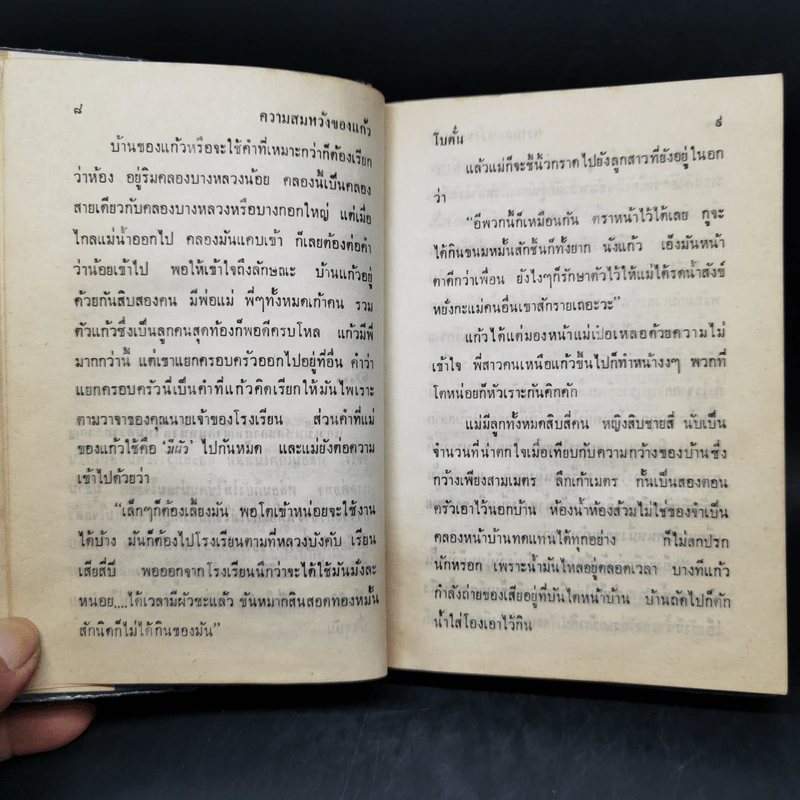 ๘
ความสมหวังของแก้ว
บ้านของแก้วหรือจะใช้คำที่เหมาะกว่าก็ต้องเรียก
ว่าห้อง อยู่ริมคลองบางหลวงน้อย คลองนี้เป็นคลอง
สายเดียวกับคลองบางหลวงหรือบางกอกใหญ่ แต่เมื่อ
ไกลแม่น้ำออกไป คลองมันแคบเข้า ก็เลยต้องต่อคำ
ว่าน้อยเข้าไป พอให้เข้าใจถึงลักษณะ บ้านแก้วอยู่
ด้วยกันสิบสองคน มีพ่อแม่ พี่ๆทั้งหมดเก้าคน รวม
ตัวแก้วซึ่งเป็นลูกคนสุดท้องก็พอดีครบโหล แก้วมีพี่
มากกว่านี้ แต่เขาแยกครอบครัวออกไปอยู่ที่อื่น คำว่า
แยกครอบครัวนี่เป็นคำที่แก้วคิดเรียกให้มันไพเราะ
ตามวาจาของคุณนายเจ้าของโรงเรียน ส่วนคำที่แม่
ของแก้วใช้คือ 'มีผัว' ไปกันหมด และแม่ยังต่อความ
เข้าไปด้วยว่า
“เล็กๆก็ต้องเลี้ยงมัน พอโตเข้าหน่อยจะใช้งาน
ได้บ้าง มันก็ต้องไปโรงเรียนตามที่หลวงบังคับ เรียน
เสียสี่ปี พอออกจากโรงเรียนนึกว่าจะได้ใช้มันมั่งละ
หนอย....ได้เวลามีผัวซะแล้ว ขันหมากสินสอดทองหมั้น
สักนิดก็ไม่ได้กินของมัน”
โบตั๋น
๙
แล้วแม่ก็จะชี้นิ้วกราดไปยังลูกสาวที่ยังอยู่ในอก
ว่า
“อีพวกนี้ก็เหมือนกัน ตราหน้าไว้ได้เลย กูจะ
ได้กินขนมหมั้นสักชิ้นก็ทั้งยาก นังแก้ว เอ็งมันหน้า
ตาดีกว่าเพื่อน ยังไงๆก็รักษาตัวไว้ให้แม่ได้รดน้ำสังข์
หยั่งกะแม่คนอื่นเขาสักรายเถอะวะ”
แก้วได้แต่มองหน้าแม่เป๋อเหลอด้วยความไม่
เข้าใจ พี่สาวคนเหนือแก้วขึ้นไปก็ทำหน้างงๆ พวกที่
โตหน่อยก็หัวเราะกันคิกคัก
แม่มีลูกทั้งหมดสิบสี่คน หญิงสิบชายสี่ นับเป็น
จำนวนที่น่าตกใจเมื่อเทียบกับความกว้างของบ้านซึ่ง
กว้างเพียงสามเมตร ลึกเก้าเมตร กั้นเป็นสองตอน
ครัวเอาไว้นอกบ้าน ห้องน้ำห้องส้วมไม่ใช่ของจำเป็น
คลองหน้าบ้านทดแทนได้ทุกอย่าง ก็ไม่สกปรก
นักหรอก เพราะน้ำมันไหลอยู่ตลอดเวลา บางทีแก้ว
กำลังถ่ายของเสียอยู่ที่บันไดหน้าบ้าน บ้านถัดไปก็ตัก
น้ำใส่โอ่งเอาไว้กิน